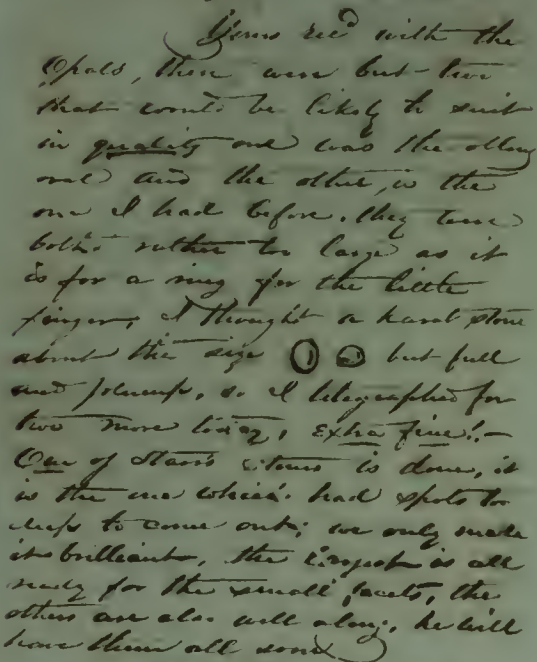 Yours rec'd with the
Opals, there were but two
that would be likely to suit
in quality one was the oblong
oval and the other, is the
one I had before. they were
both rather too large as it
is for a ring for the little
finger, I thought a stone
about this size but full
and plump, so I telegraphed for
two more today, Extra fine!—
One of Starr's stones is done, it
is the one which had spots too
deep to come out; we only made
it brilliant, the largest is all
ready for the small facets, the
others are also well along; he will
have them all soon